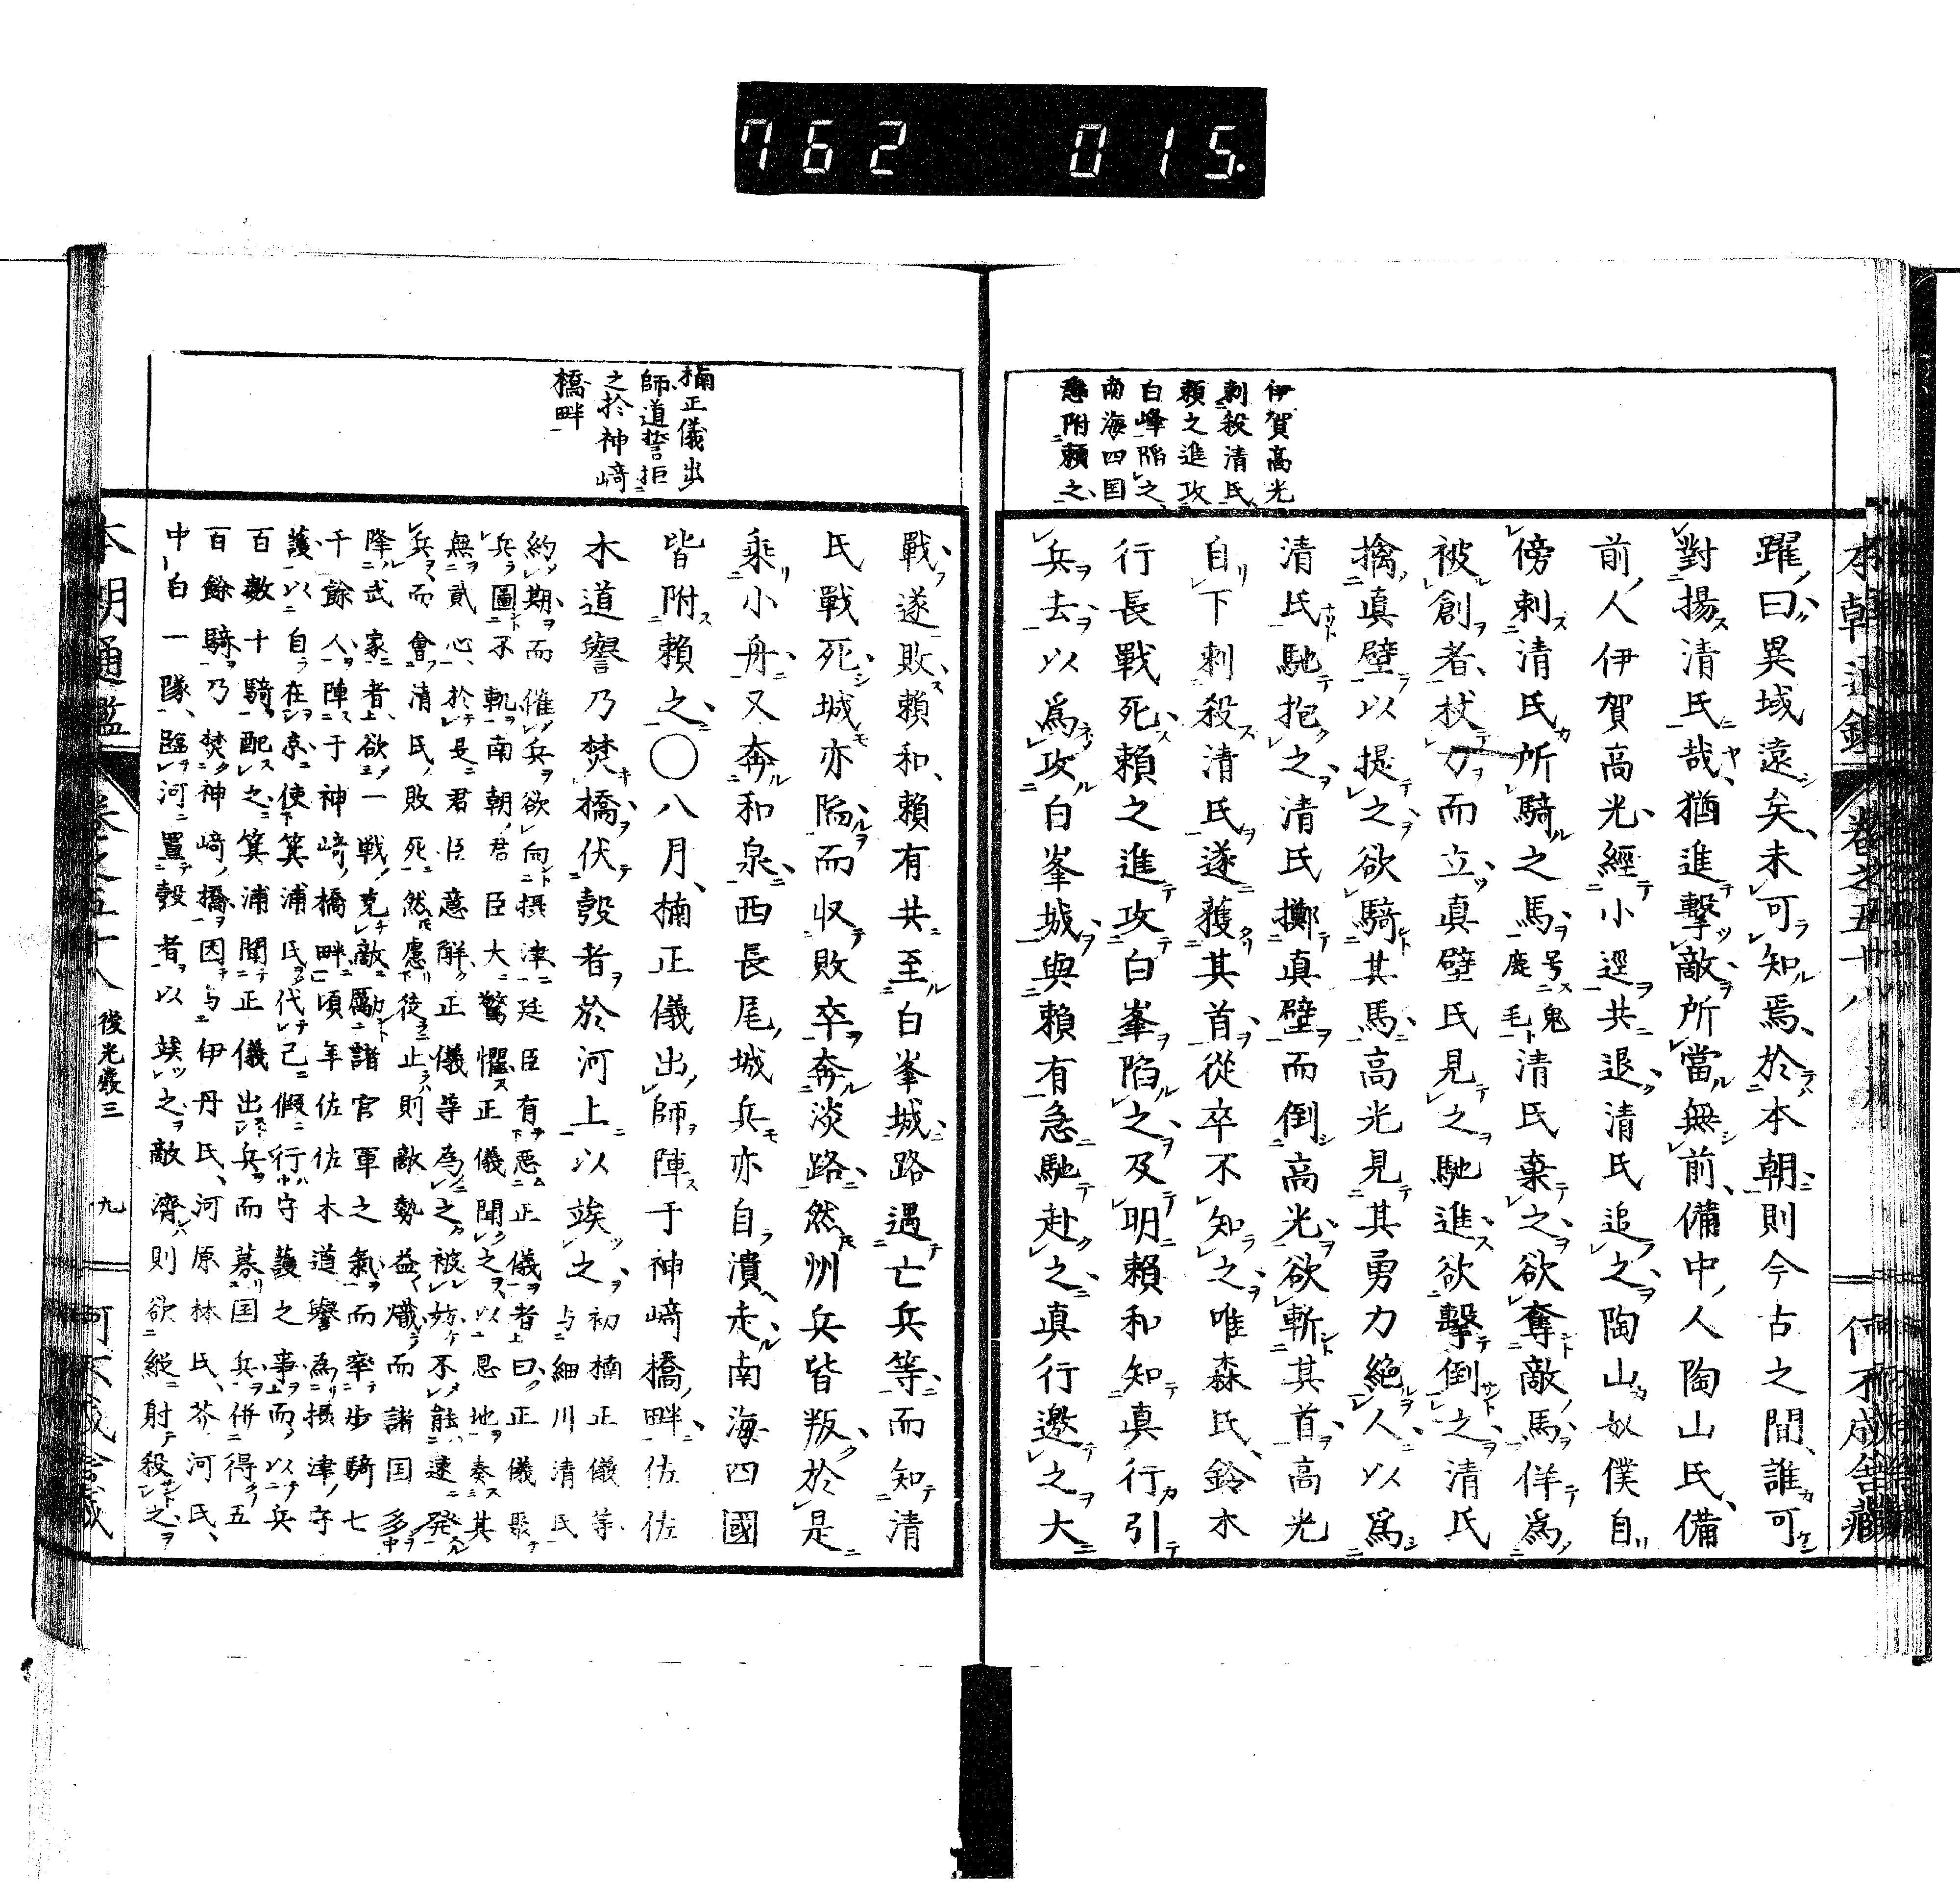 762 015.
本朝通鑑 卷之五十八
何不成舎藏
伊賀高光
刺殺清氏
頼之進攻
白峰陥之
南海四国
悉附頼之
躍曰異域遠矣未可知焉於本朝則今古之間誰可
對揚清氏哉猶進擊敵所當無前備中人陶山氏備
前人伊賀高光經小逕共退清氏追之陶山奴僕自
傍刺清氏所騎之馬号鬼鹿毛清氏棄之欲奪敵馬佯為
被創者杖刀而立真壁氏見之馳進欲擊倒之清氏
擒真壁以提之欲騎其馬高光見其勇力絶人以為
清氏馳抱之清氏擲真壁而倒高光欲斬其首高光
自下刺殺清氏遂獲其首從卒不知之唯森氏鈴木
行長戰死頼之進攻白峯陷之及明頼和知真行引
兵去以為攻白峯城與頼有急馳赴之真行邀之大
楠正儀出
師道誉拒
之於神﨑
橋畔
戰遂敗頼和頼有共至白峯城路遇亡兵等而知清
氏戰死城亦陥而収敗卒奔淡路然州兵皆叛於是
乘小舟又奔和泉西長尾城兵亦自潰走南海四國
皆附頼之〇八月楠正儀出師陣于神﨑橋畔佐佐
木道譽乃焚橋伏彀者於河上以竢之初楠正儀等与細川清氏
約期而催兵欲向摂津廷臣有悪正儀者曰正儀聚
兵圖不軌南朝君臣大驚懼正儀聞之以恩地奏其
無貳心於是君臣意解正儀等為之被妨不能速発
兵而會清氏敗死然慮徒止則敵勢益熾而諸国多
降武家者欲一戰克敵勵諸官軍之氣而率步騎七
千餘人陣于神﨑橋畔頃年佐佐木道譽為摂津守
護以自在京使箕浦氏代己假行守護之事而以兵
百數十騎配之箕浦聞正儀出兵而募国兵併得五
百餘騎乃焚神﨑橋因与伊丹氏河原林氏芥河氏
中白一隊臨河置彀者以竢之敵濟則欲縦射殺之
本朝通鑑 卷之五十八 後光嚴三 九